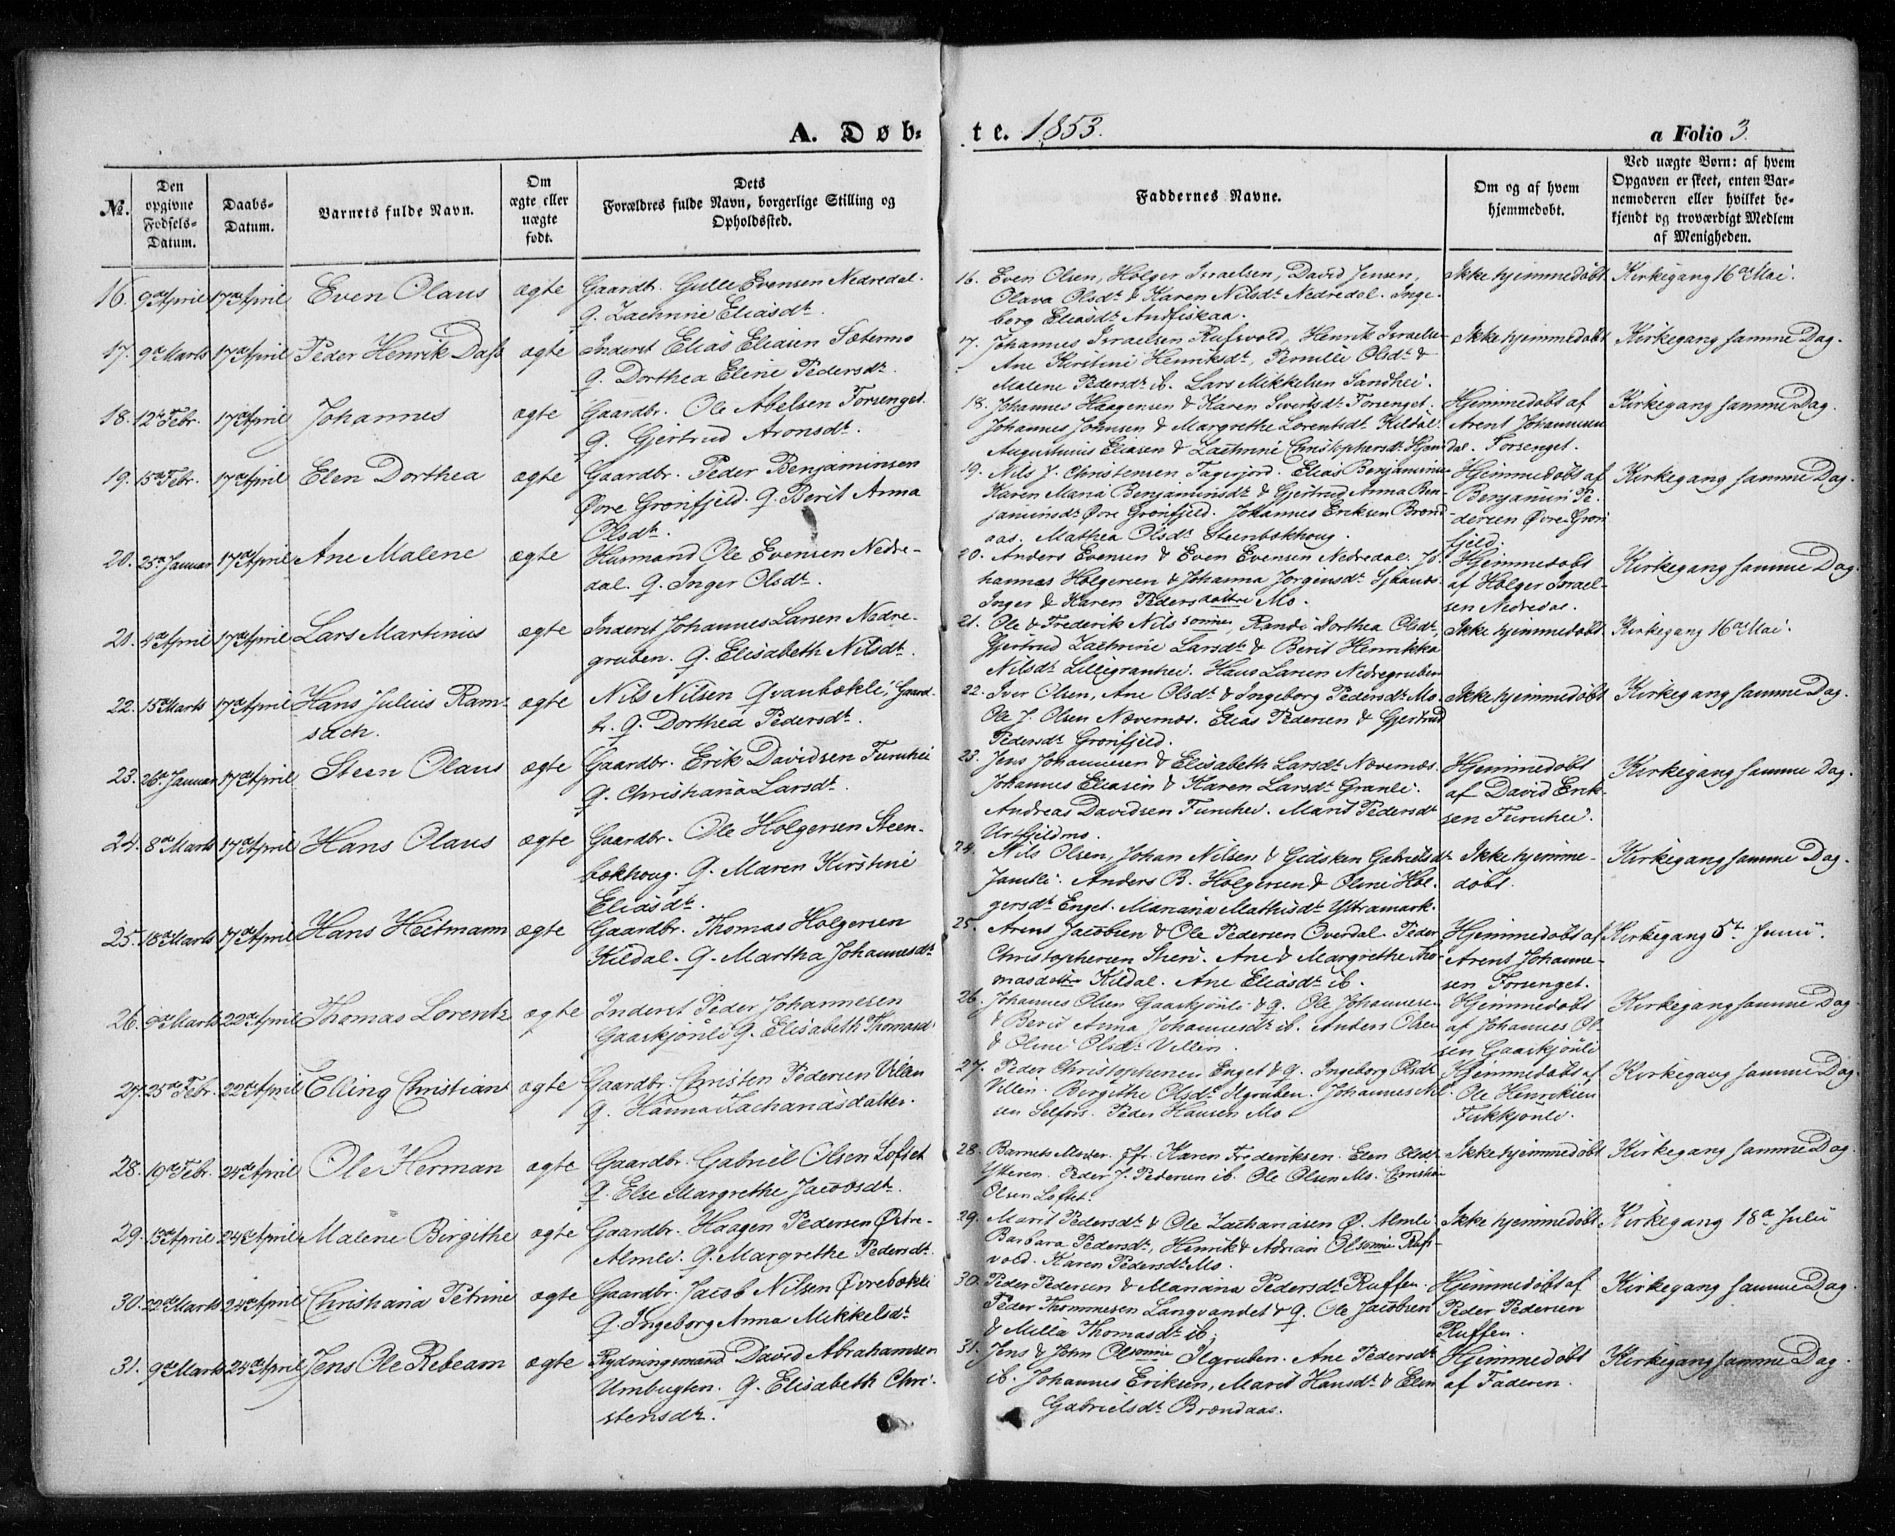 A. Døb-
te. 1853.
a Folio 3.
No.
Den opgivne Fødsels-Datum.
Daabs-Datum.
Barnets fulde Navn.
Om ægte eller uægte født.
Dets Forældres fulde Navn, borgerlige Stilling og Opholdssted.
Faddernes Navne.
Om og af hvem hjemmedøbt.
Ved uægte Børn: af hvem Opgaven er skeet, enten Barnemoderen eller hvilket bekjendt og troværdigt Medlem af Menigheden.
16. 9de April 17de April Even Olaus ægte Gaardb. Gulle Evensen Nedredal.
Q. Zachrine Eliasdt.
16. Even Olsen, Holger Israelsen, David Jensen,
Olava Olsdt & Karen Nilsdt Nedredal. Inge-
borg Eliasdt Andfiskaa.
Ikke hjemmedøbt Kirkegang 16de Mai.
17. 9de Marts 17de April Peder Henrik Dass ægte Inderst Elias Eliasen Sæternes
Q. Dorthea Eline Pedersdt.
17. Johannes Israelsen Rufsvold, Henrik Israelsen
Ane Kirstine Henriksdt, Pernille Olsdt &
Malene Pedersdt ib. Lars Mikkelsen Sandhei.
Ikke hjemmedøbt Kirkegang samme Dag.
18. 12te Febr. 17de April Johannes ægte Gaardbr. Ole Abelsen Forsenget.
Q. Gjertrud Aronsdt.
18. Johannes Haagensen & Karen Sivertsdt Forsenget.
Johannes Johnsen & Margrethe Lorentsdt Kildal.
Augustinus Eliasen & Zachrine Christophersdt
Hjemmedøbt af
Arent Johannesen
Forsenget.
Kirkegang samme Dag.
19. 15de Febr. 17de April Elen Dorthea ægte Gaardbr. Peder Benjaminsen
Øvre Grønfjeld. Q. Berit Anna
Olsdt.
19. Nils J. Christensen Fagerjord. Elias Benjaminsen
Karen Maria Benjaminsdt & Gjertrud Anna Ben-
jaminsdt Øvre Grønfjeld. Johannes Eriksen Brænd-
aas. Mathea Olsdt Steenbekhoug.
Hjemmedøbt af
Benjamin Pe-
dersen Øvre Grøn-
fjeld.
Kirkegang samme Dag.
20. 25de Januar 17de April Ane Malene ægte Husmand Ole Evensen Nedre-
dal. Q. Inger Olsdt.
20. Anders Evensen & Even Evensen Nedredal. Jo-
hannes Holgersen & Johanna Jørgensdt
Inger & Karen Pedersdøttre Mo.
Hjemmedøbt
af Holger Israel-
sen Nedredal.
Kirkegang samme Dag.
21. 4de April 17de April Lars Martinus ægte Inderst Johannes Larsen Nedre-
gruben. Q. Elisabeth Nilsdt.
21. Ole & Frederik Nilssønner, Randi Dorthea Olsdt,
Gjertrud Zachrine Larsdt & Berit Henrikka
Nilsdt Lillegranhei. Hans Larsen Nedregruben
Ikke hjemmedøbt Kirkegang 16de Mai.
22. 15de Marts 17de April Hans Julius Ram-
sach.
ægte Nils Nilsen Qvanbækli, Gaard-
br. Q. Dorthea Pedersdt.
22. Iver Olsen, Ane Olsdt & Ingeborg Pedersdt Mo
Ole J. Olsen Nævernæs. Elias Pedersen & Gjertrud
Pedersdt Grønfjeld.
Ikke hjemmedøbt Kirkegang samme Dag.
23. 26de Januar 17de April Steen Olaus ægte Gaardbr. Erik Davidsen Furuhei
Q. Christiana Larsdt.
23. Jens Johannesen & Elisabeth Larsdt Nævernæs.
Johannes Eliasen & Karen Larsdt Granli.
Andreas Davidsen Furuhei. Marit Pedersdt
Urtfjeldmo.
Hjemmedøbt
af David Erik-
sen Furuhei.
Kirkegang samme Dag.
24. 8de Marts 17de April Hans Olaus ægte Gaardbr. Ole Holgersen Steen-
bekhoug. Q. Maren Kirstine
Eliasdt.
24. Nils Olsen, Johan Nilsen & Gidsken Gabrielsdt
Jamtli. Anders B. Holgersen & Oline Hol-
gersdt Enget. Mariana Mathisdt Yttramark.
Ikke hjemme-
døbt.
Kirkegang samme Dag.
25. 18de Marts 17de April Hans Heitmann ægte Gaardbr. Thomas Holgersen
Kildal. Q. Martha Johannesdt
25. Arent Jacobsen & Ole Pedersen Overdal. Peder
Christophersen Steen. Ane & Margrethe Tho-
masdøttre Kildal. Ane Eliasdt ib.
Hjemmedøbt af
Arent Johanne-
sen Forsenget.
Kirkegang 5te Junii.
26. 9de Marts 22de April Thomas Lorentz ægte Inderst Peder Johannesen
Gaaskjønli Q. Elisabeth Thomasdt
26. Johannes Olsen Gaaskjønli & Q. Ole Johannesen
& Berit Anna Johannesdt ib. Anders Olsen
& Oline Olsdt Villen.
Hjemmedøbt
af Johannes Ol-
sen Gaaskjønli
Kirkegang samme Dag
27. 25de Febr. 22de April Elling Christian ægte Gaardbr. Christen Pedersen Villen
Q. Hanna Zachariasdatter.
27. Peder Christophersen Enget & Q. Ingeborg Olsdt
Villen. Birgithe Olsdt Ilgruben. Johannes Nil-
sen Selfors. Peder Hansen Mo.
Hjemmedøbt af
Ole Henriksen
Fiskkjønli.
Kirkegang samme Dag.
28. 19de Febr. 24de April Ole Herman ægte Gaardbr. Gabriel Olsen Loftet
Q. Else Margrethe Jacobsdt.
28. Barnets Moder. Jfr. Karen Frederiksen. Elen Olsdt
Ytteren. Peder J. Pedersen ib. Ole Olsen Mo. Christian
Olsen Loftet.
Ikke hjemmedøbt Kirkegang samme Dag.
29. 13de April 24de April Malene Birgithe ægte Gaardbr. Haagen Pedersen Østre-
Almli. Q. Margrethe Pedersdt.
29. Marit Pedersdt & Ole Zachariasen Ø. Almli.
Barbara Pedersdt, Henrik & Adrian Olsønner Rufs-
vold. Karen Pedersdt Mo.
Ikke hjemmedøbt Kirkegang 18de Julii
30. 22de Marts 24de April Christiana Petrine ægte Gaardbr. Jacob Nilsen Øvrebækli
Q. Ingeborg Anna Mikkelsdt.
30. Peder Pedersen & Mariana Pedersdt Ruffen.
Peder Thommesen Langvandet & Q. Ole Jacobsen
& Milla Thomasdt ib.
Hjemmedøbt af
Peder Pedersen
Ruffen.
Kirkegang samme Dag.
31. 9de Marts 24de April Jens Ole Ribeam ægte Rydningsmand David Abrahamsen
Umbugten. Q. Elisabeth Chri-
stensdt.
31. Jens & John Olsønner Ilgruben. Ane Pedersdt
ib. Johannes Eriksen, Marit Hansdt & Elen
Gabrielsdt Brændaas.
Hjemmedøbt
af Faderen.
Kirkegang samme Dag.